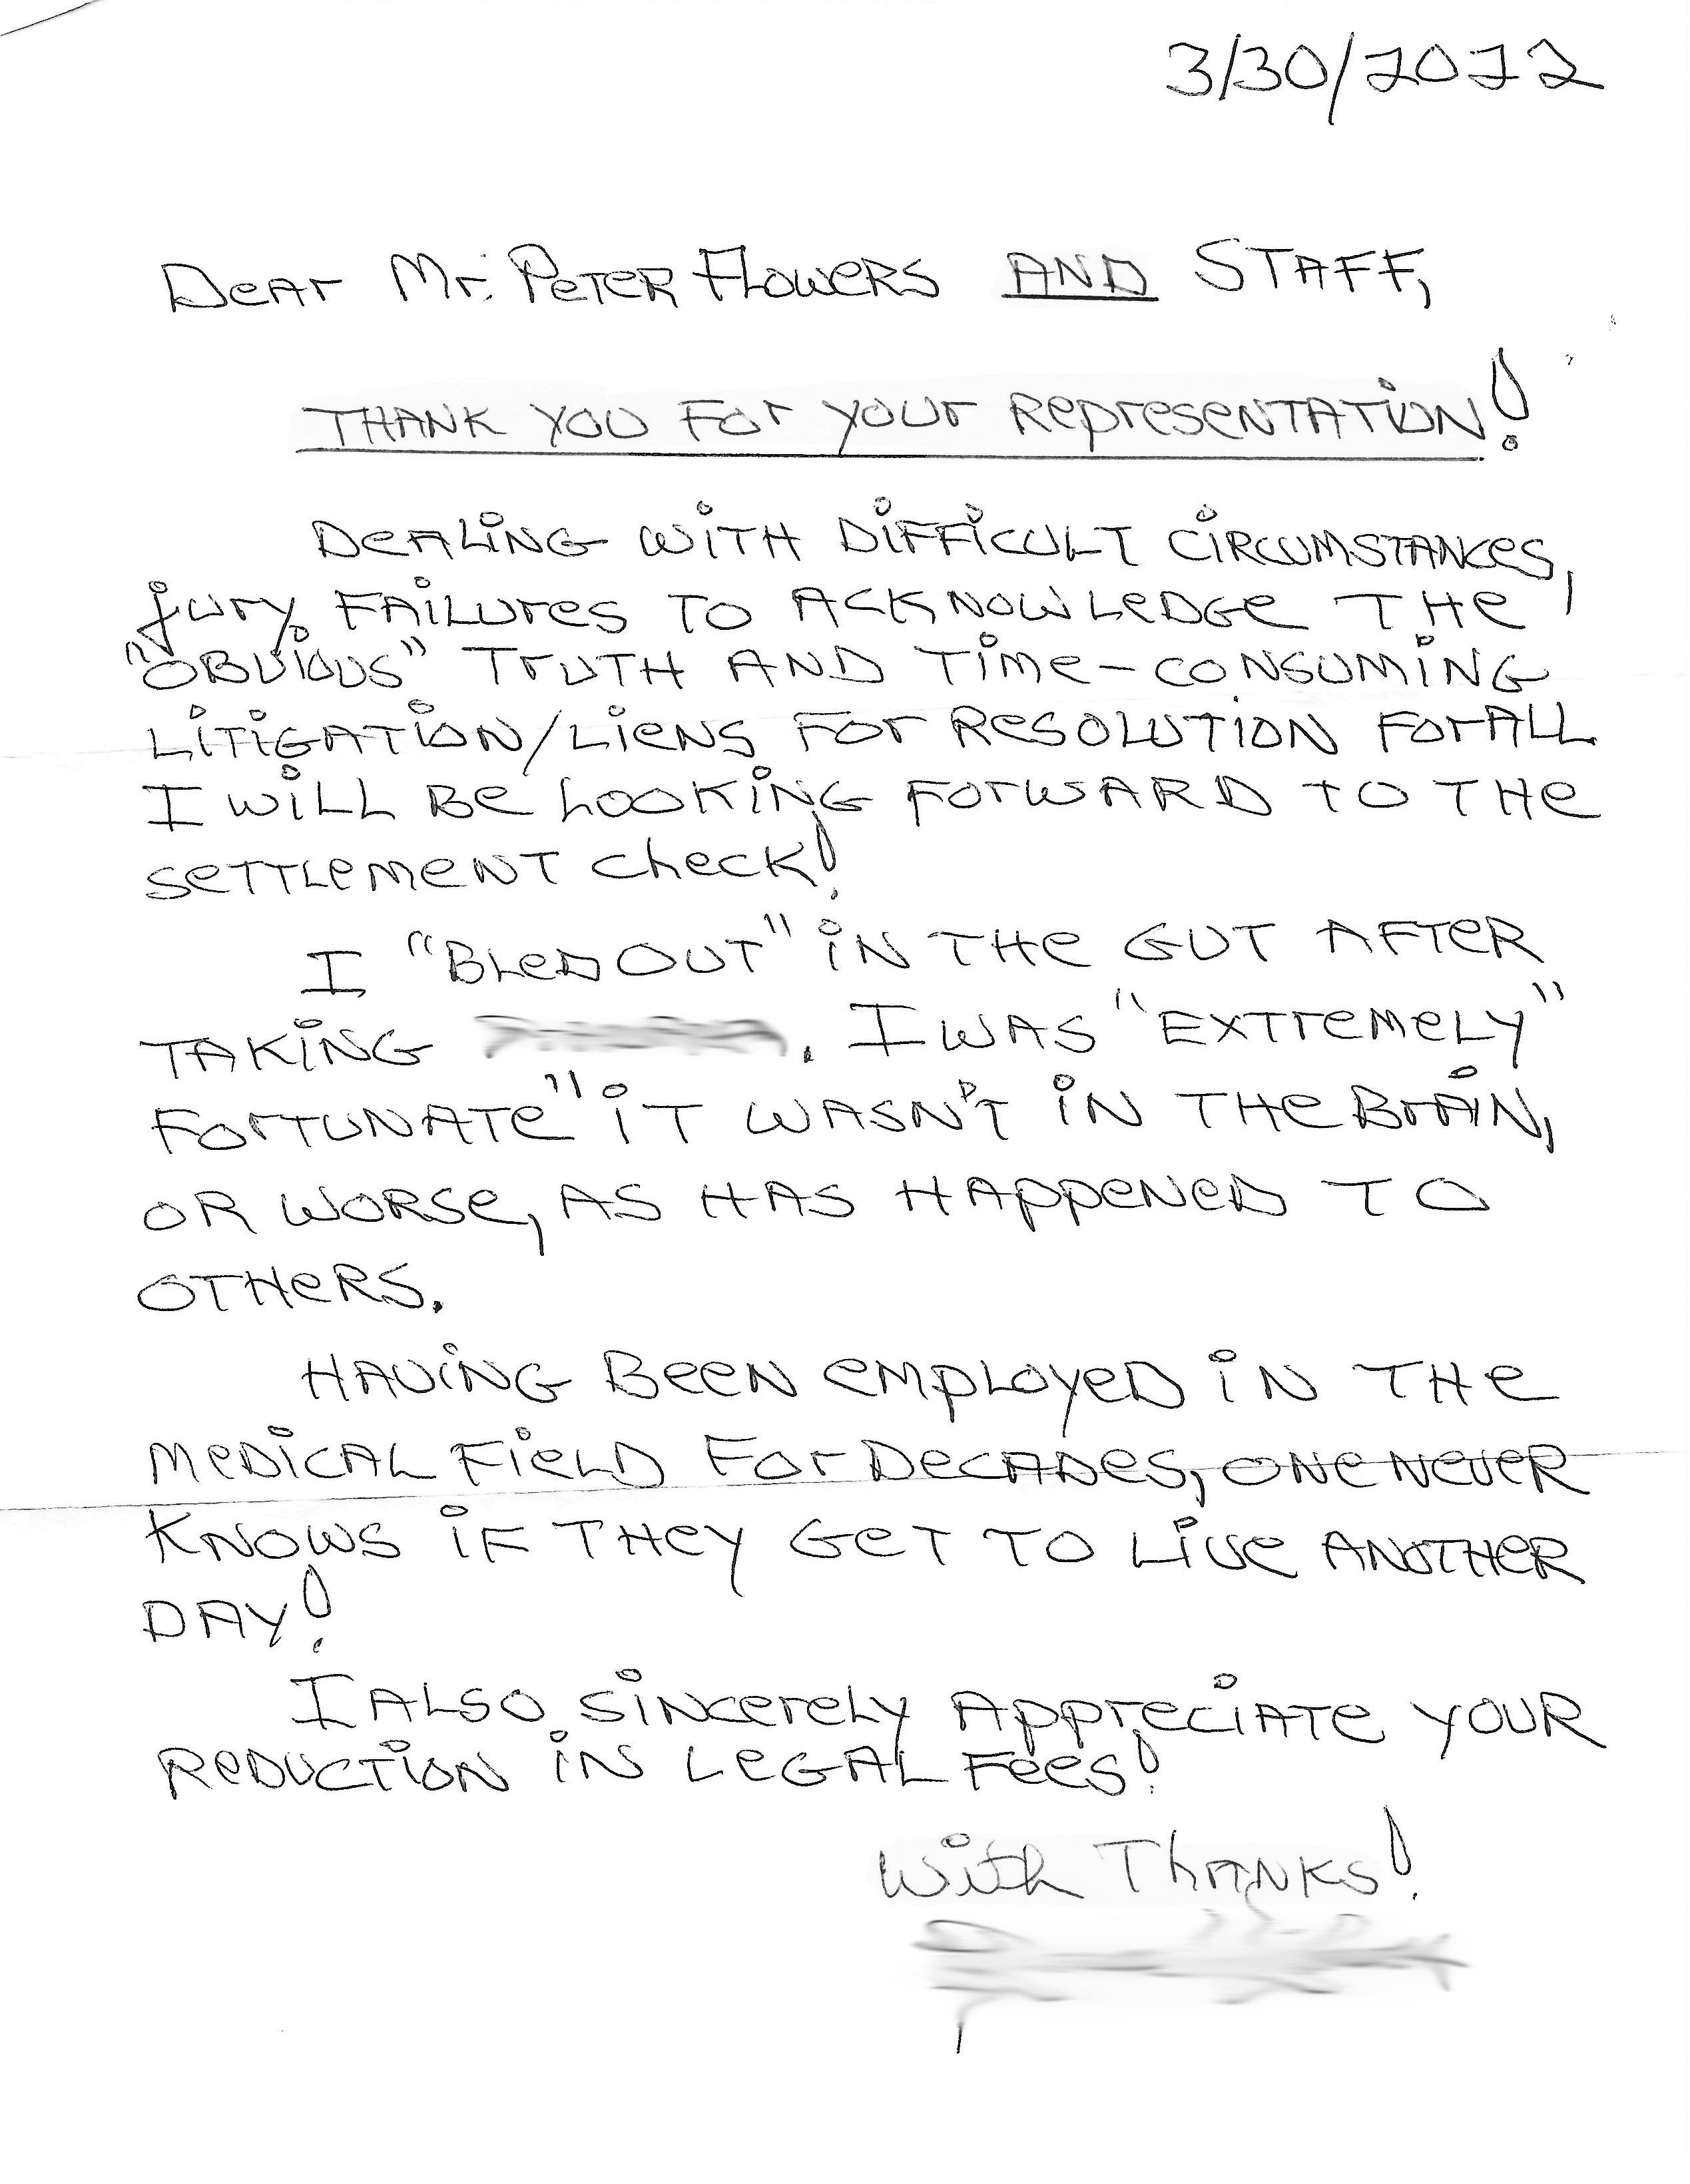 3/30/2022
Dear Mr. Peter Flowers AND Staff,
THANK YOU FOR YOUR REPRESENTATION!
Dealing with difficult circumstances,
jury failures to acknowledge the
"obvious" truth and time-consuming
litigation/liens for resolution for all
I will be looking forward to the
settlement check!
I "bled out" in the gut after
taking . I was "extremely"
fortunate" it wasn't in the brain,
or worse, as has happened to
others.
Having been employed in the
medical field for decades, one never
knows if they get to live another
day!
I also sincerely appreciate your
reduction in legal fees!
With Thanks!